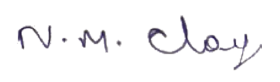 N. M. Clay